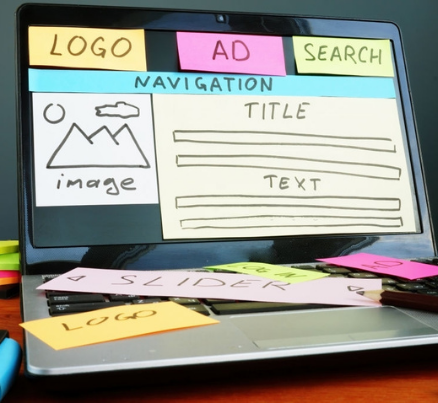 LOGO
AD
SEARCH
NAVIGATION
TITLE
image
TEXT
SLIDER
LOGO